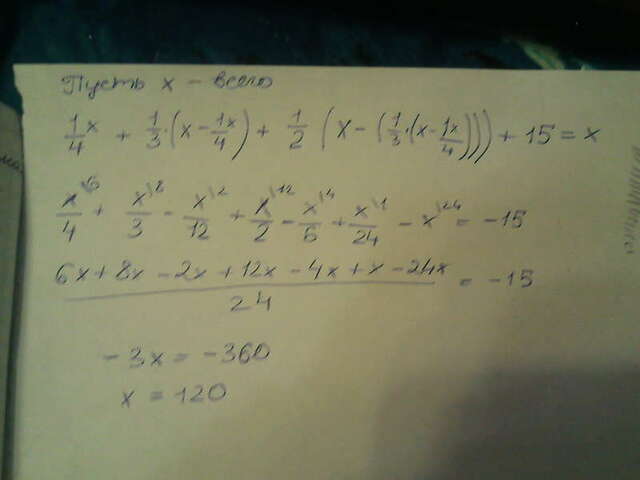 Пусть x - всего
1/4 x + 1/3 · (x - 1x/4) + 1/2 (x - (1/3 · (x - 1x/4)))) + 15 = x
x\6/4 + x\8/3 - x\2/12 + x\12/2 - x\4/6 + x\1/24 - x\24 = -15
6x + 8x - 2x + 12x - 4x + x - 24x / 24 = -15
-3x = -360
x = 120